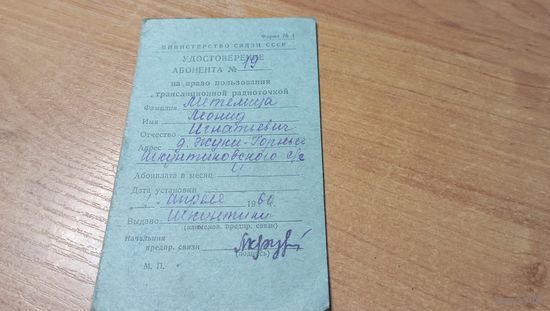 Форма № 1
МИНИСТЕРСТВО СВЯЗИ СССР
УДОСТОВЕРЕНИЕ
АБОНЕНТА № 19
на право пользования
трансляционной радиоточкой
Фамилия Метелица
Имя Леонид
Отчество Игнатьевич
Адрес д. Жуки-Горные
Шкунтиковского с/с
Абонплата в месяц
Дата установки
апреля 1960 г.
Выдано Шкунтики
(наименов. предпр. связи)
Начальник
предпр. связи
(подпись)
М. П.